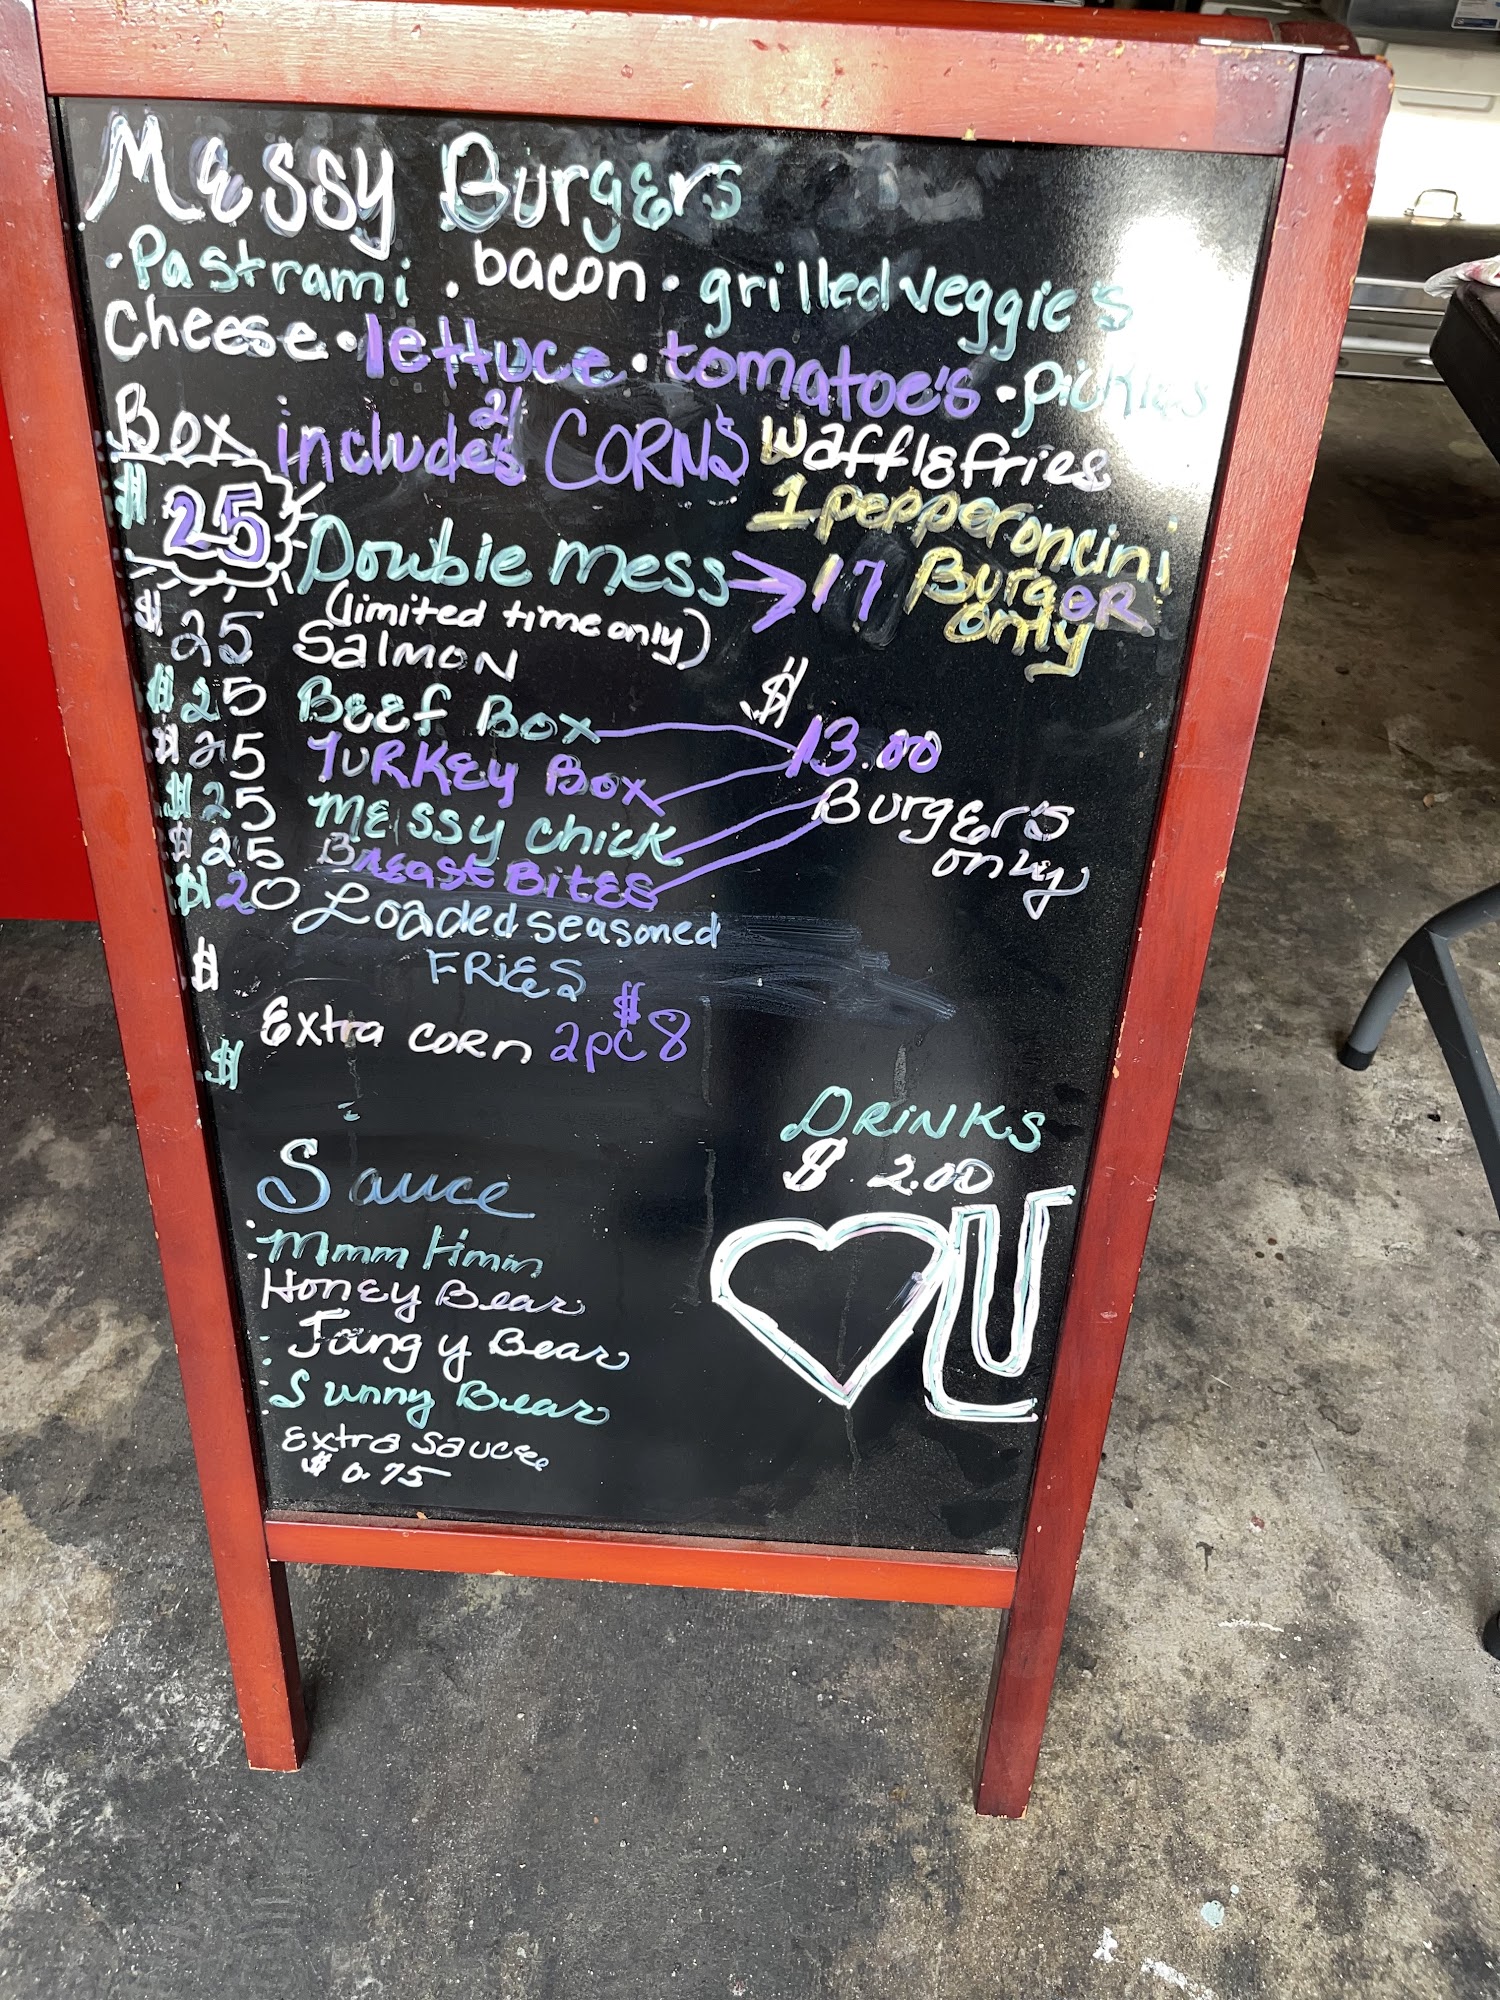 Messy Burgers
·Pastrami . bacon · grilled veggie's
Cheese · lettuce · tomatoe's · pickles
Box includes 2 CORNS Waffle fries
1 pepperoncini
$25 Double mess → 17 BurgeR only
(limited time only)
$25 Salmon
$25 Beef Box
$25 TURKEy Box
$13.00
Burger's
only
$25 Messy chick
$25 Breast Bites
$20 Loaded seasoned
FRiES
$
Extra corn 2pc $8
$
DRiNKS
$ 2.00
Sauce
Mmm Hmm
Honey Bear
Tangy Bear
Sunny Bear
Extra sauce
$ 0.75
U